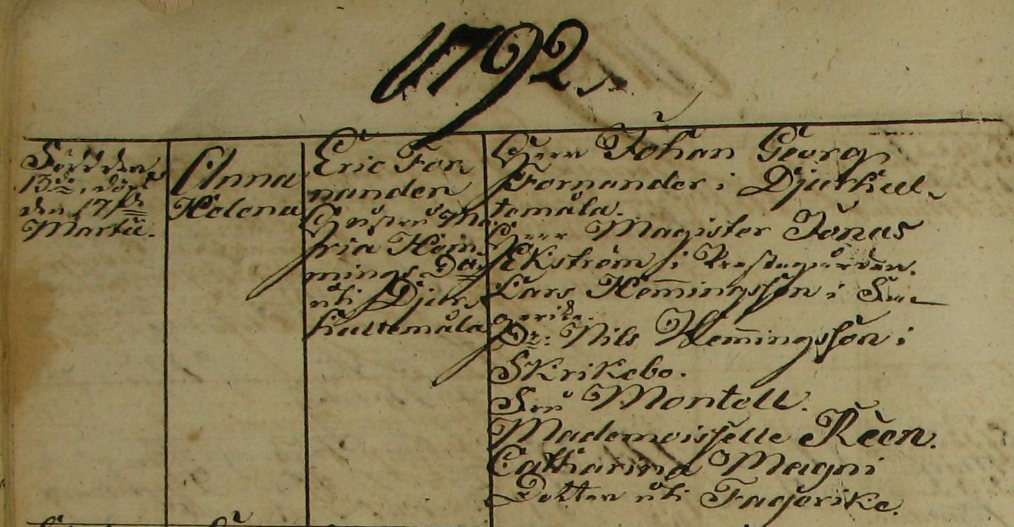 1792.
Född den
13de, döpt
den 17de
Martii.
Anna
Helena
Eric For
nander
Hustru Ma
ria Hem
mings Dotr
uti Djur
hultemåla
Herr Johan Georg
Fornander i Djurhul-
temåla.
Herr Magister Jonas
Ekström i Prostegården.
Lars Hemingsson i Fa
gerike.
Dr: Nils Hemingsson i
Skrikebo.
Montell.
Mademoisselle Reen.
Catharina Magni
Dotter uti Fagerike.